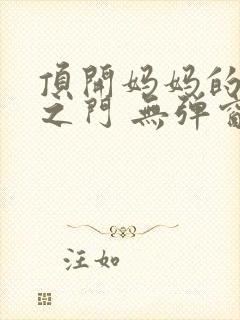 頂開妈妈的
之门 無弹窗
汪如